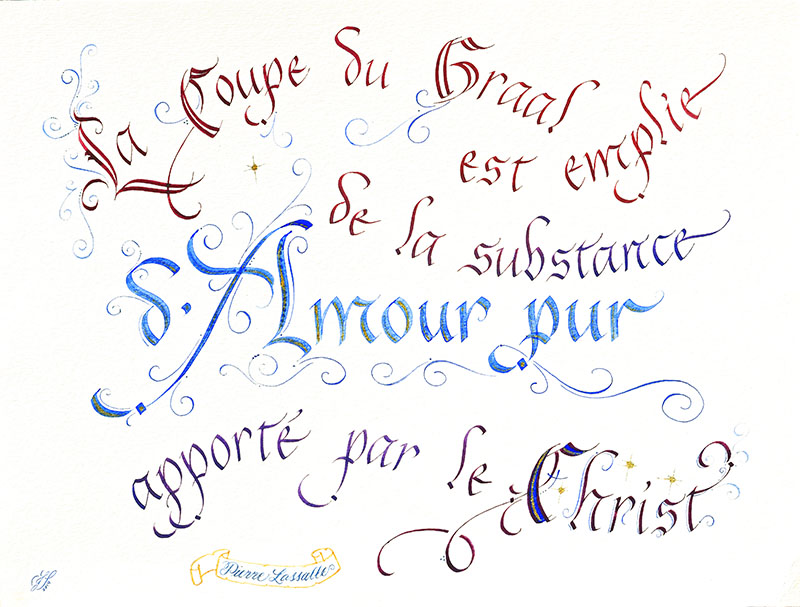 La Coupe du Graal
est emplie
de la substance
d'Amour pur
apporté par le Christ
Pierre Lassalle